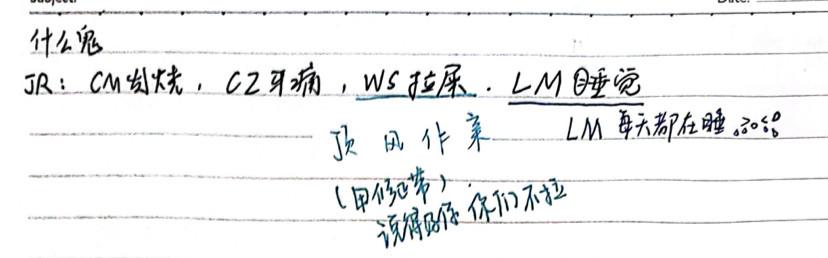 什么鬼
JR：CM发烧，CZ牙痛，WS拉屎．LM睡觉
LM 每天都在睡
顶风作案
(用修正带)
说得好像你们不拉